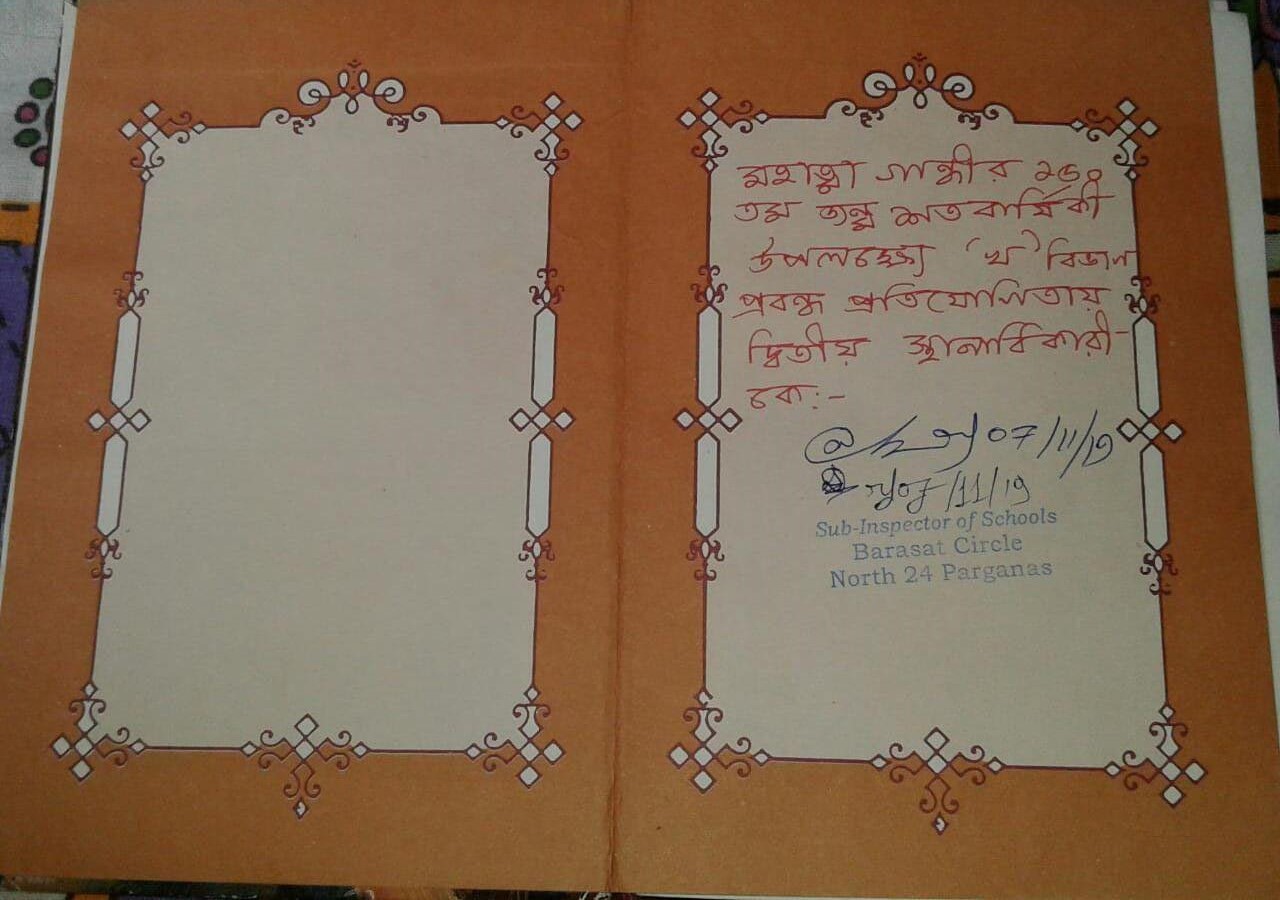 মহাত্মা গান্ধীর ১৫০
তম জন্ম শতবার্ষিকী
উপলক্ষ্যে 'খ' বিভাগ
প্রবন্ধ প্রতিযোগিতায়
দ্বিতীয় স্থানাধিকারী-
কে:-
07/11/19
07/11/19
Sub-Inspector of Schools
Barasat Circle
North 24 Parganas